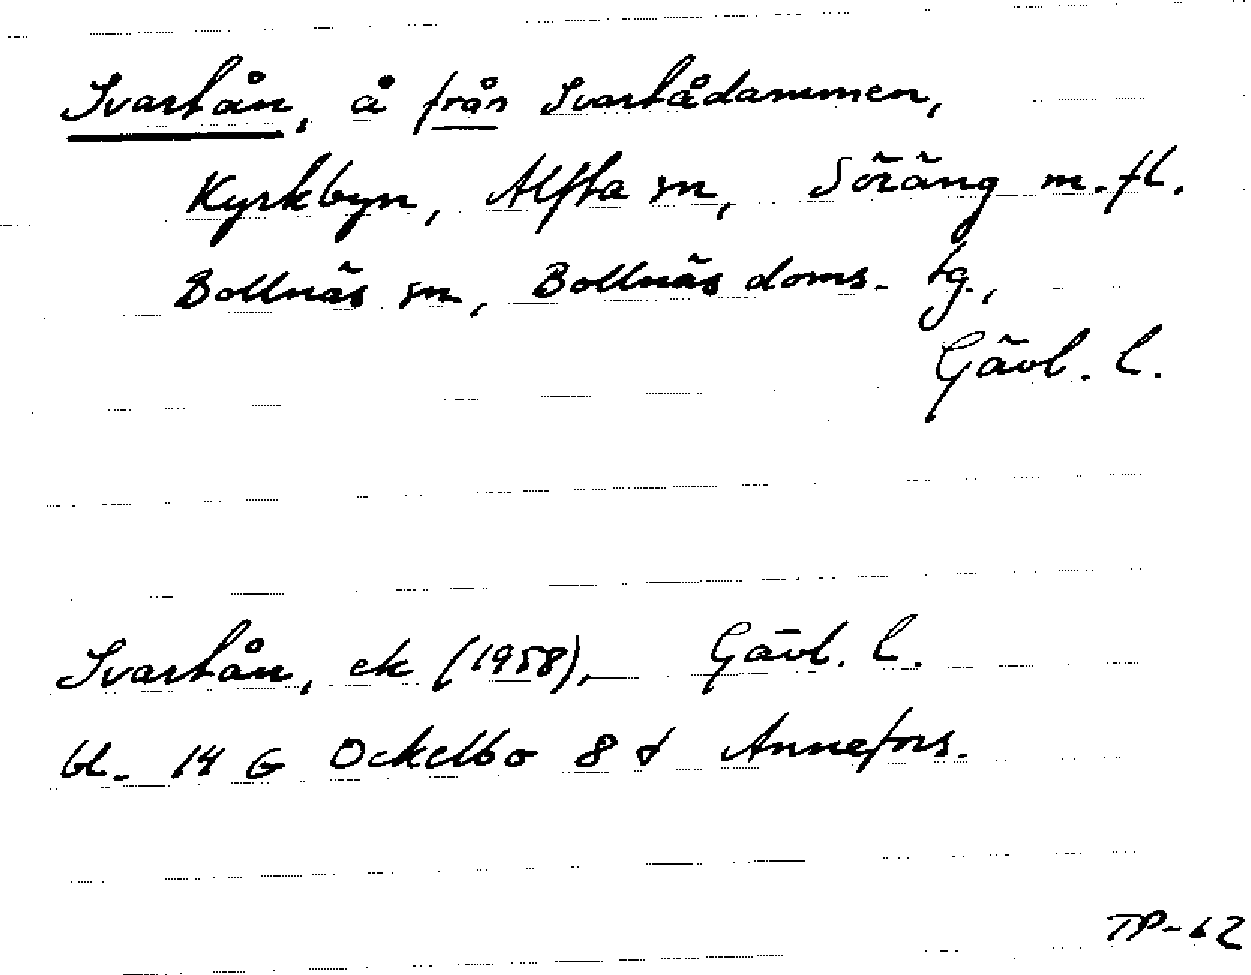 Svartån, å från Svartådammen,
Kyrkbyn, Alfta sn, Söräng m.fl.
Bollnäs sn, Bollnäs doms. tg.,
Gävl. l.
Svartån, ek (1958), Gävl. l.
bl. 14 G Ockelbo 8 d Annefors.
TP-62